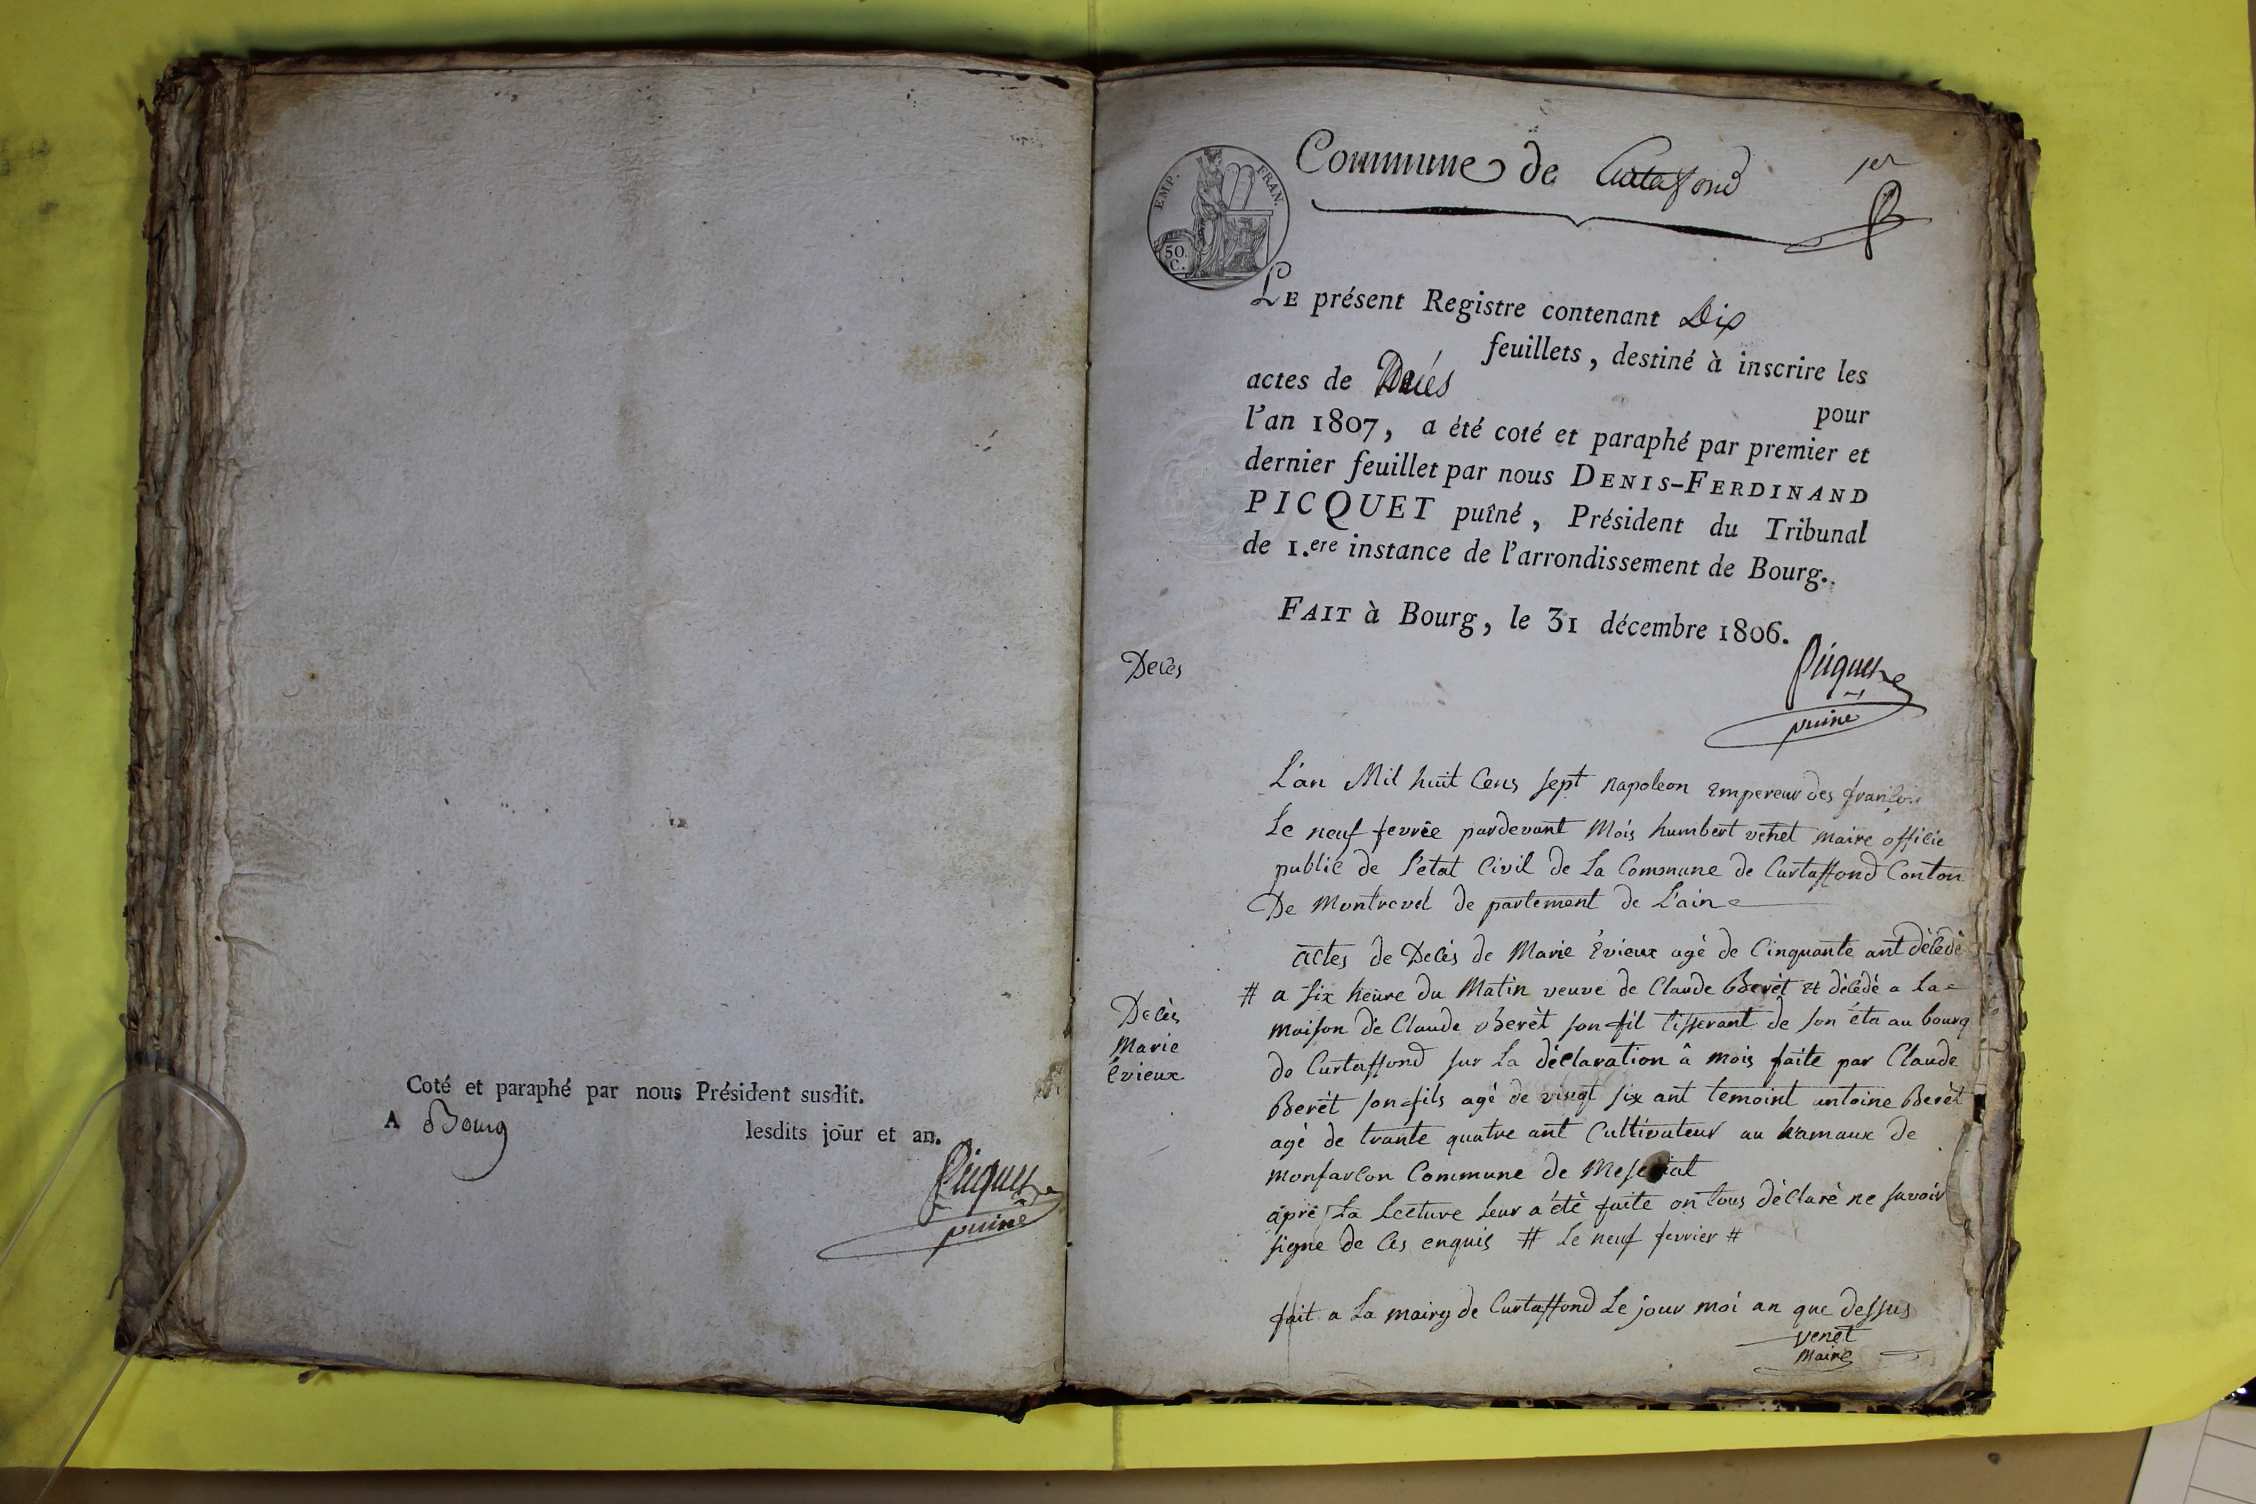 Coté et paraphé par nous Président susdit.
A Bourg lesdits jour et an.
Picquet
puiné
Commune de Curtafond
1er
EMP. FRAN.
50.
C.
LE présent Registre contenant Dix
feuillets, destiné à inscrire les
actes de Décès
pour
l'an 1807, a été coté et paraphé par premier et
dernier feuillet par nous DENIS-FERDINAND
PICQUET puîné, Président du Tribunal
de 1.ere instance de l'arrondissement de Bourg.
FAIT à Bourg, le 31 décembre 1806.
Picquet
puiné
Decès
L'an Mil huit Cens sept napoleon Empereur des françois
Le neuf fevrée pardevant Mois humbert venet maire officie
public de l'etat Civil de La Commune de Curtaffond Canton
De Montrevel de partement de L'ain
Decès
Marie
Évieux
actes de Decès de Marie Évieux agé de Cinquante ant décedé
# a six heure du Matin veuve de Claude Berèt et délédé a La
maison de Claude Berèt son fil tisserant de son éta au bourg
de Curtaffond sur La déclaration â mois faite par Claude
Berèt son fils agé de vingt six ant temoint antoine Berèt
agé de trante quatre ant Cultivateur au hamaux de
monfarcon Commune de Meseriat
âprè La Lecture leur a été faite on tous déclaré ne savoir
signe de Ces enquis # Le neuf fevrier #
fait a La mairy de Curtaffond Le jour moi an que dessus
venet
maire